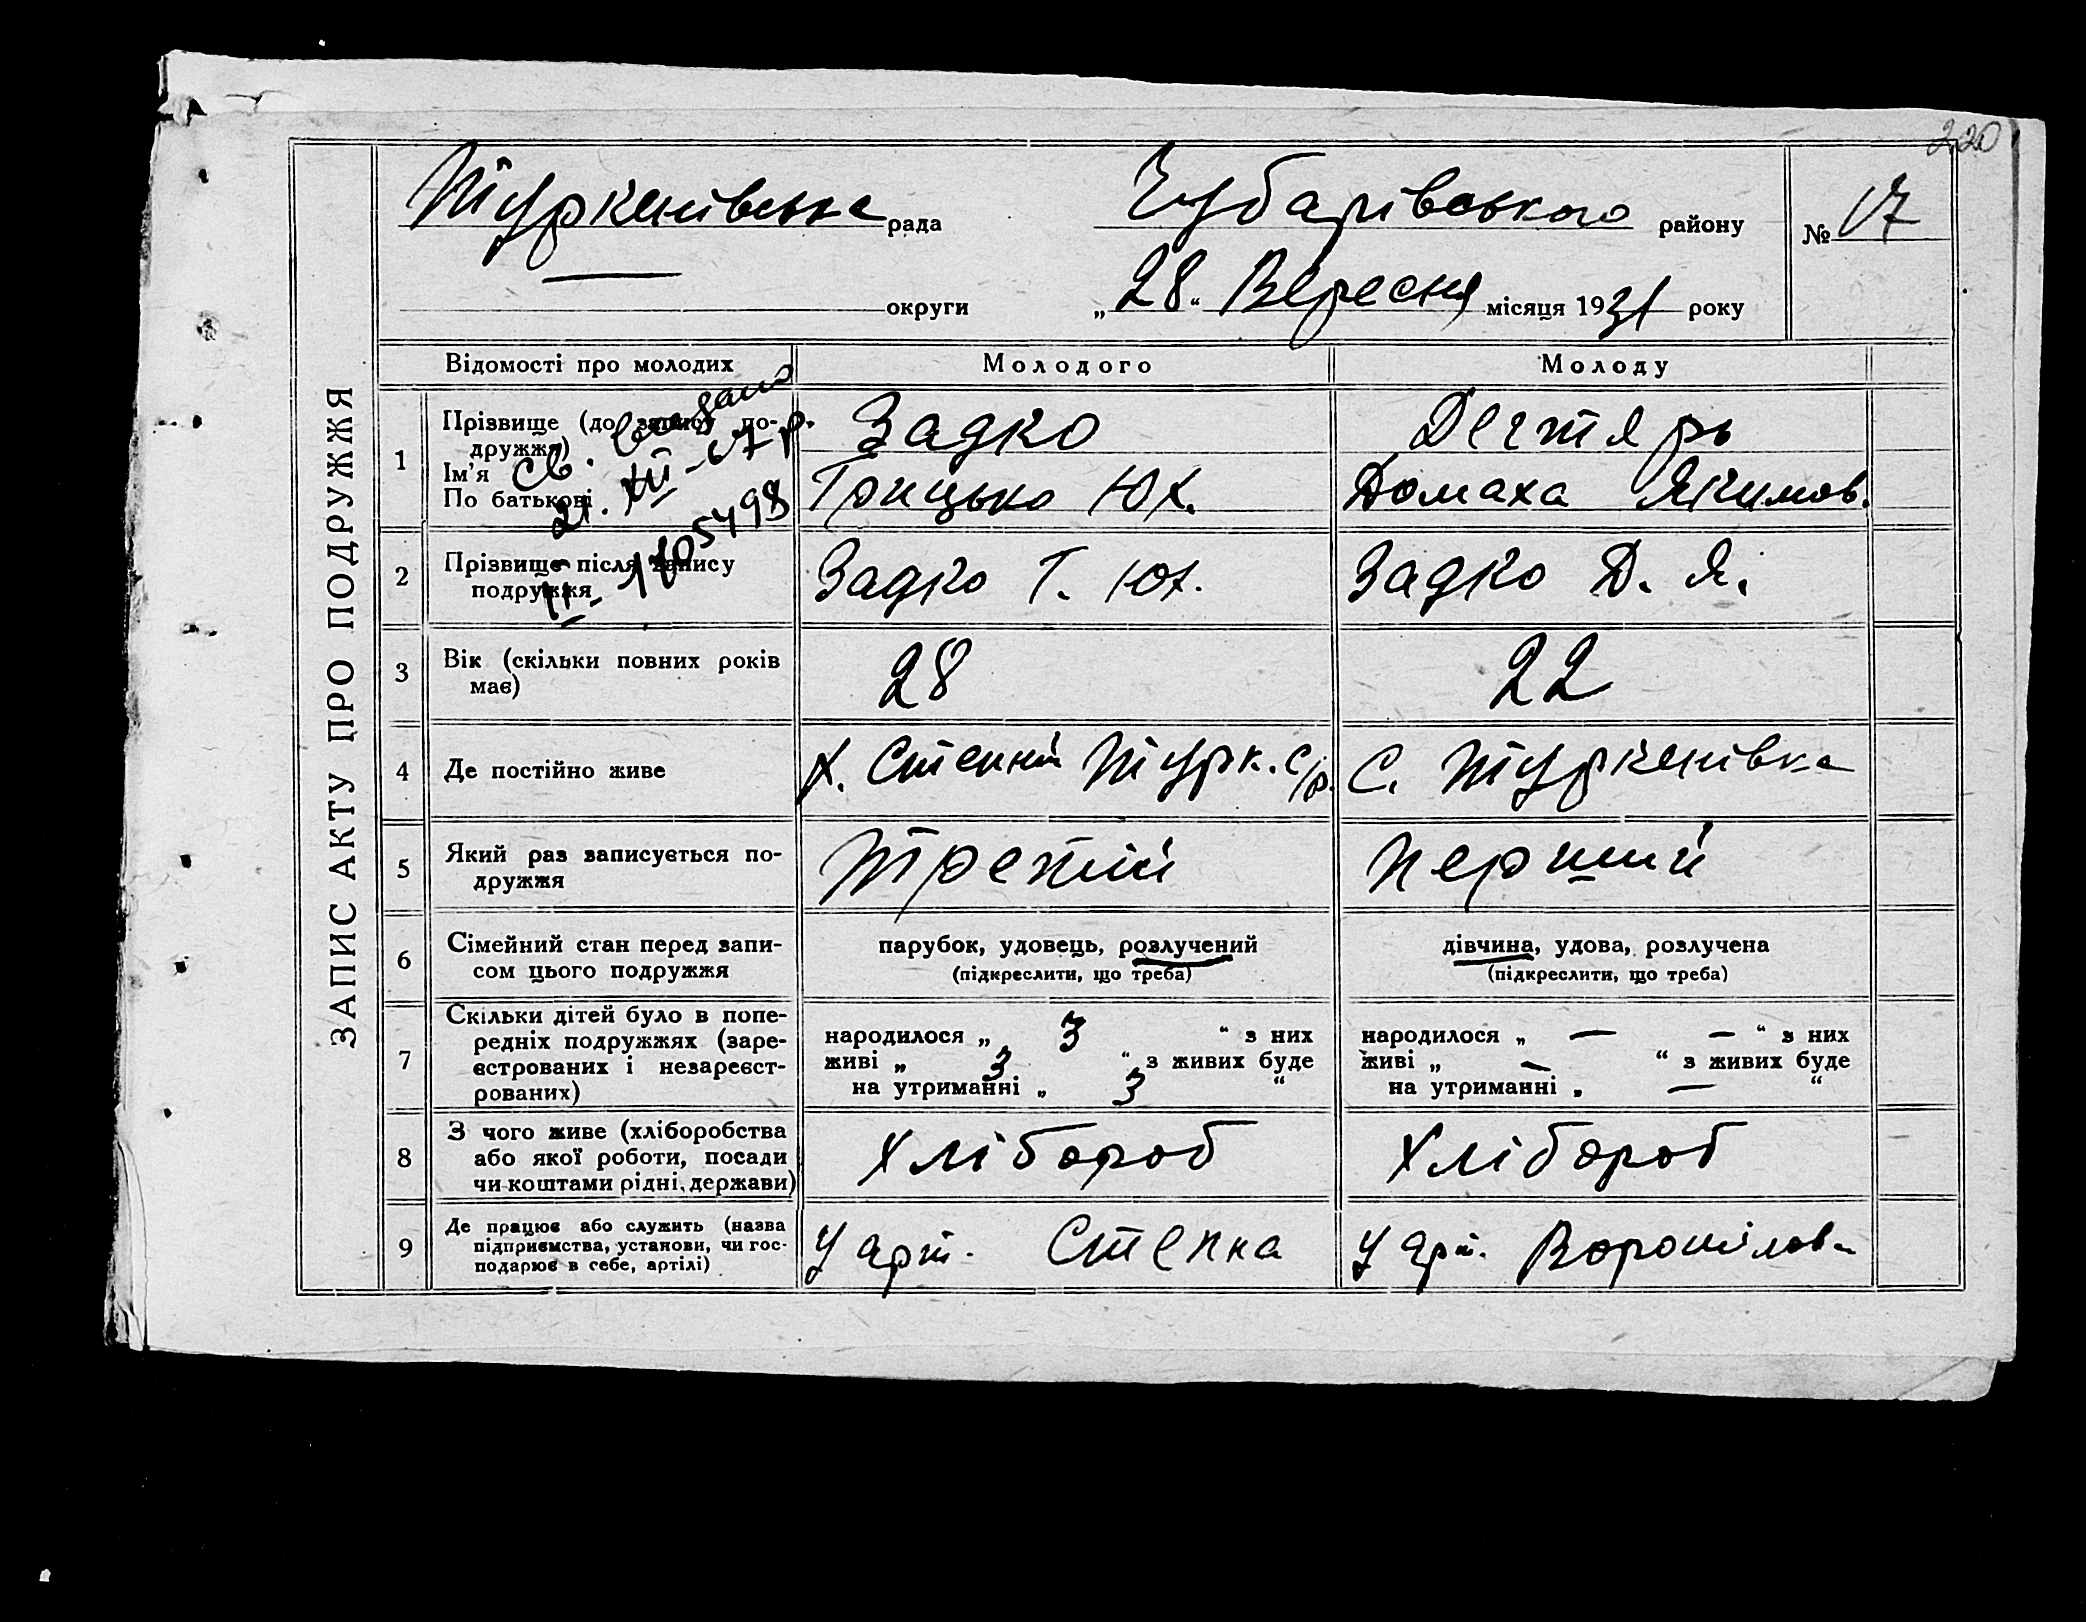 220
ЗАПИС АКТУ ПРО ПОДРУЖЖЯ
Туркенівська рада Чубарівського району № 17
— округи „28“ Вересня місяця 1931 року
Відомості про молодих Молодого Молоду
1 Прізвище (до запису подружжя) Задко Дегтярь
Ім'я
По батькові Грицько Юх. Домаха Якимов.
св. выдано
21. XII-67 р.
II- 1705498
2 Прізвище після запису подружжя Задко Г. Юх. Задко Д. Я.
3 Вік (скільки повних років має) 28 22
4 Де постійно живе х. Степний Турк. с/р. с. Туркенівка
5 Який раз записується подружжя Третій Перший
6 Сімейний стан перед записом цього подружжя парубок, удовець, розлучений дівчина, удова, розлучена
(підкреслити, що треба) (підкреслити, що треба)
7 Скільки дітей було в попередніх подружжях (зареєстрованих і незареєстрованих)
народилося „ 3 “ з них народилося „ — — “ з них
живі „ 3 “ з живих буде живі „ — “ з живих буде
на утриманні „ 3 “ на утриманні „ — “
8 З чого живе (хліборобства або якої роботи, посади чи коштами рідні, держави) Хлібороб Хлібороб
9 Де працює або служить (назва підприємства, установи, чи господарює в себе, артілі) У арт. Степна У арт. Ворошілова